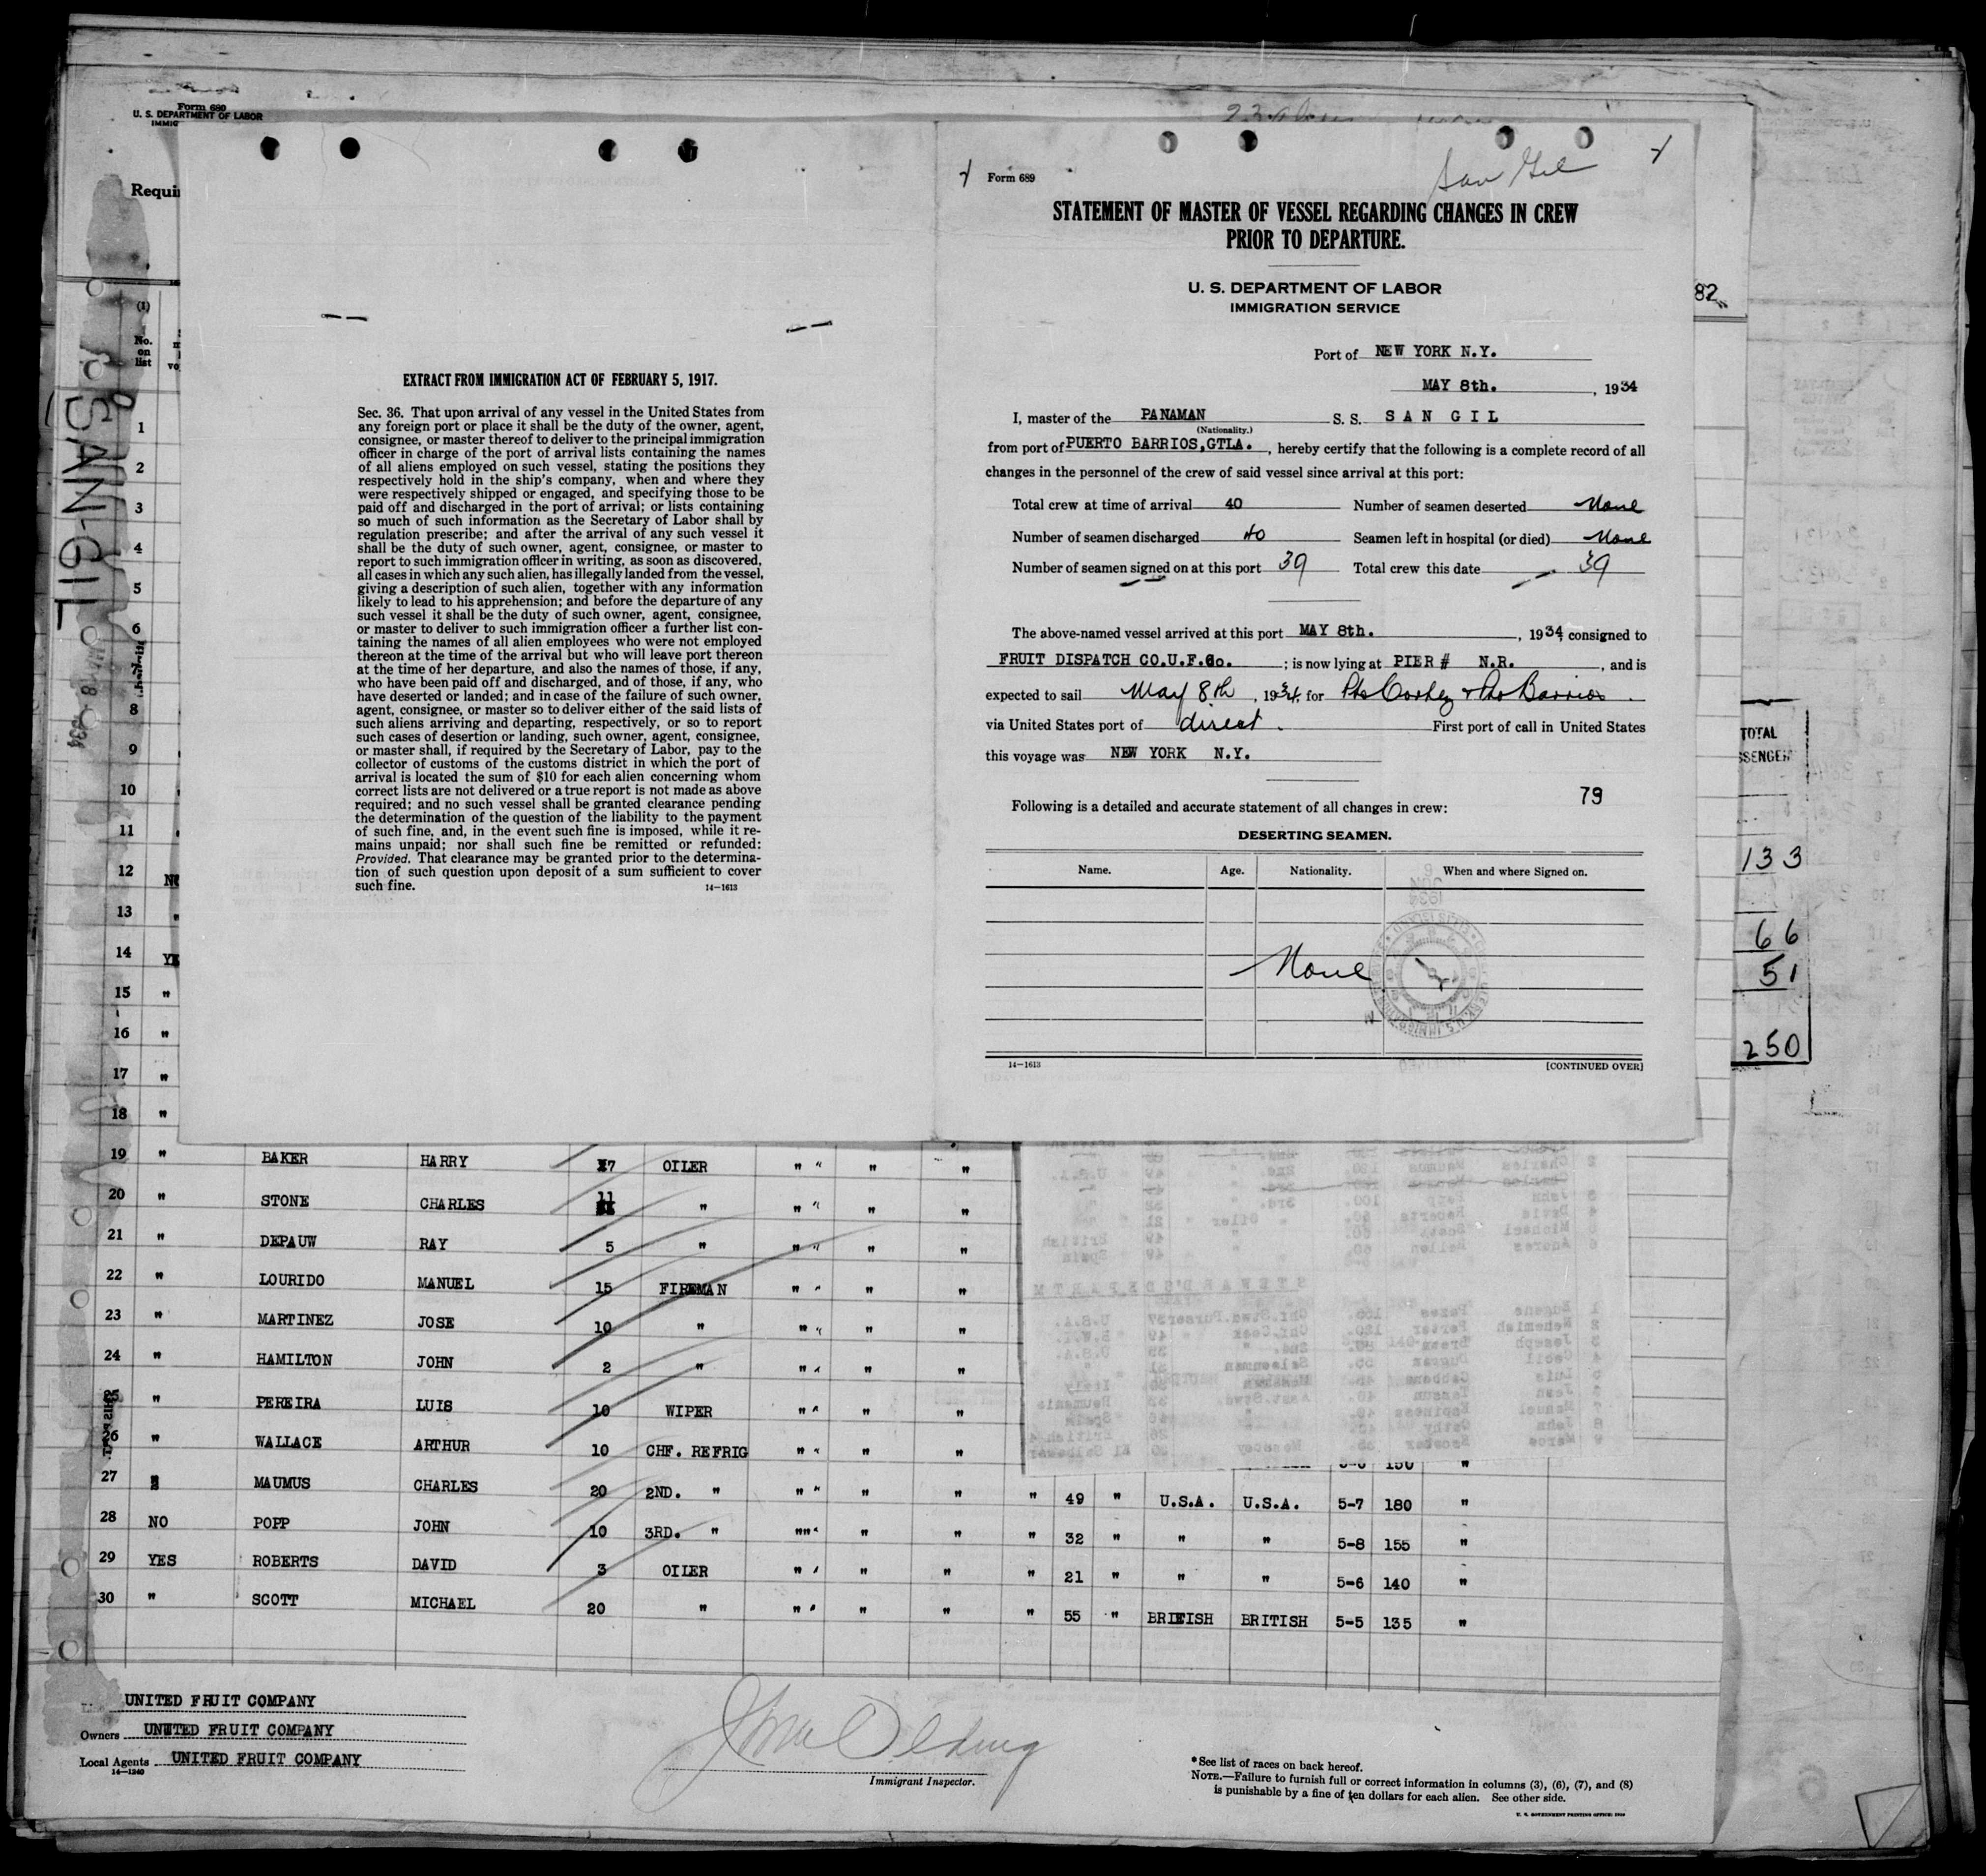 Form 680
U. S. DEPARTMENT OF LABOR
IMMIG
Requi
(1)
No.
on
list
SAN GIL
82
EXTRACT FROM IMMIGRATION ACT OF FEBRUARY 5, 1917.
Sec. 36. That upon arrival of any vessel in the United States from
any foreign port or place it shall be the duty of the owner, agent,
consignee, or master thereof to deliver to the principal immigration
officer in charge of the port of arrival lists containing the names
of all aliens employed on such vessel, stating the positions they
respectively hold in the ship's company, when and where they
were respectively shipped or engaged, and specifying those to be
paid off and discharged in the port of arrival; or lists containing
so much of such information as the Secretary of Labor shall by
regulation prescribe; and after the arrival of any such vessel it
shall be the duty of such owner, agent, consignee, or master to
report to such immigration officer in writing, as soon as discovered,
all cases in which any such alien, has illegally landed from the vessel,
giving a description of such alien, together with any information
likely to lead to his apprehension; and before the departure of any
such vessel it shall be the duty of such owner, agent, consignee,
or master to deliver to such immigration officer a further list con-
taining the names of all alien employees who were not employed
thereon at the time of the arrival but who will leave port thereon
at the time of her departure, and also the names of those, if any,
who have been paid off and discharged, and of those, if any, who
have deserted or landed; and in case of the failure of such owner,
agent, consignee, or master so to deliver either of the said lists of
such aliens arriving and departing, respectively, or so to report
such cases of desertion or landing, such owner, agent, consignee,
or master shall, if required by the Secretary of Labor, pay to the
collector of customs of the customs district in which the port of
arrival is located the sum of $10 for each alien concerning whom
correct lists are not delivered or a true report is not made as above
required; and no such vessel shall be granted clearance pending
the determination of the question of the liability to the payment
of such fine, and, in the event such fine is imposed, while it re-
mains unpaid; nor shall such fine be remitted or refunded:
Provided, That clearance may be granted prior to the determina-
tion of such question upon deposit of a sum sufficient to cover
such fine.
14—1613
San Gil
Form 689
STATEMENT OF MASTER OF VESSEL REGARDING CHANGES IN CREW
PRIOR TO DEPARTURE.
U. S. DEPARTMENT OF LABOR
IMMIGRATION SERVICE
Port of NEW YORK N.Y.
MAY 8th. , 1934
I, master of the PANAMAN S. S. SAN GIL
(Nationality.)
from port of PUERTO BARRIOS,GTLA. , hereby certify that the following is a complete record of all
changes in the personnel of the crew of said vessel since arrival at this port:
Total crew at time of arrival 40 Number of seamen deserted None
Number of seamen discharged 40 Seamen left in hospital (or died) None
Number of seamen signed on at this port 39 Total crew this date 39
The above-named vessel arrived at this port MAY 8th. , 1934, consigned to
FRUIT DISPATCH CO.U.F.Co. ; is now lying at PIER # N.R. , and is
expected to sail May 8th , 1934, for Pto Cortez & Pto Barrios .
via United States port of direct . First port of call in United States
this voyage was NEW YORK N.Y.
79
Following is a detailed and accurate statement of all changes in crew:
DESERTING SEAMEN.
Name. Age. Nationality. When and where Signed on.
None
14—1613 [CONTINUED OVER]
TOTAL
133
66
51
250
1
2
3
4
5
6
8
9
10
11
12 NO
13 "
14 YE
15 "
16 "
17 "
18 "
19 " BAKER HARRY 17 OILER " " " "
20 " STONE CHARLES 11 " " " " "
21 " DEPAUW RAY 5 " " " " "
22 " LOURIDO MANUEL 15 FIREMAN " " " "
23 " MARTINEZ JOSE 10 " " " " "
24 " HAMILTON JOHN 2 " " " " "
25 " PEREIRA LUIS 10 WIPER " " " "
26 " WALLACE ARTHUR 10 CHF. REFRIG " " " " 150 "
27 MAUMUS CHARLES 20 2ND. " " " " " " 49 " U.S.A. U.S.A. 5-7 180 "
28 NO POPP JOHN 10 3RD. " "" " " " " 32 " " " 5-8 155 "
29 YES ROBERTS DAVID 3 OILER " " " " " 21 " " " 5-6 140 "
30 " SCOTT MICHAEL 20 " " " " " " 55 " BRITISH BRITISH 5-5 135 "
UNITED FRUIT COMPANY
Owners UNITED FRUIT COMPANY
Local Agents UNITED FRUIT COMPANY
14—1240
Immigrant Inspector.
*See list of races on back hereof.
NOTE.—Failure to furnish full or correct information in columns (3), (6), (7), and (8)
is punishable by a fine of ten dollars for each alien. See other side.